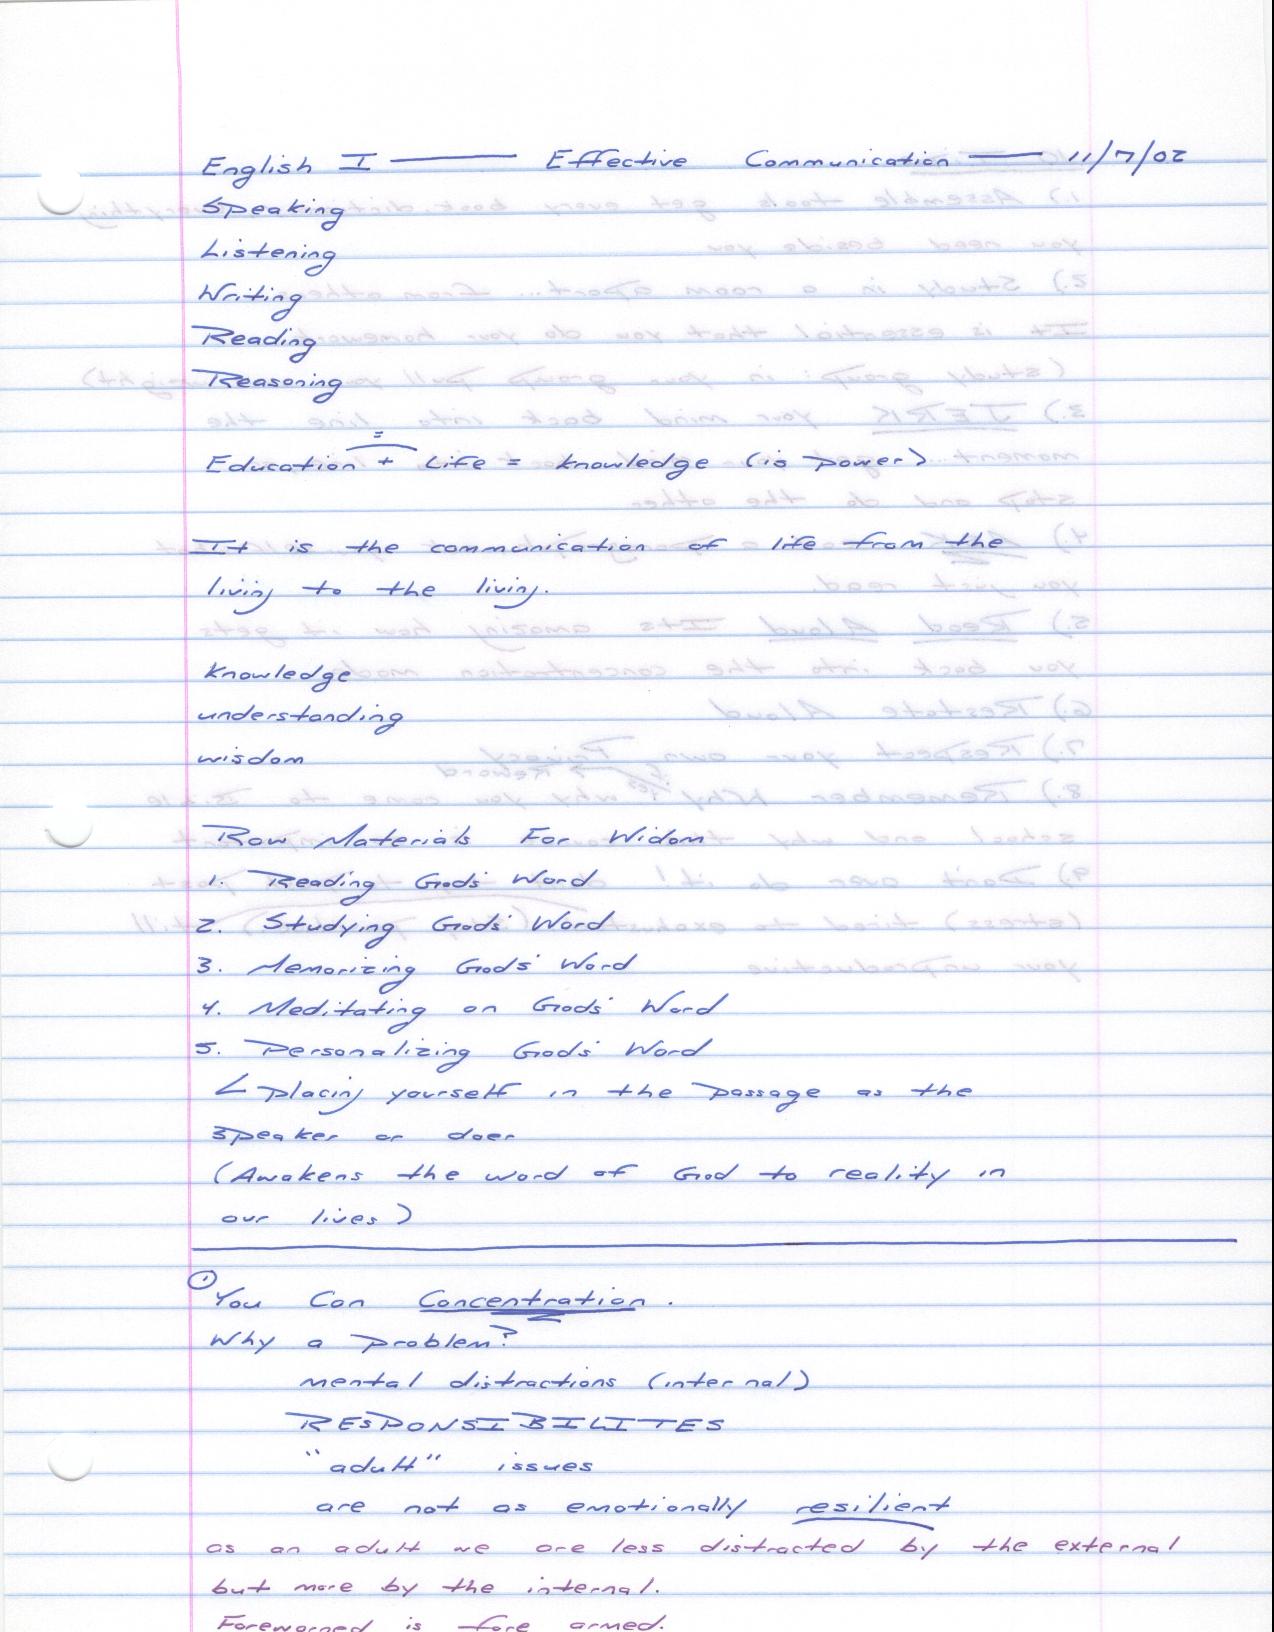 English I —— Effective Communication —— 11/7/02
Speaking
Listening
Writing
Reading
Reasoning
=
Education + Life = knowledge (is power)
It is the communication of life from the
living to the living.
knowledge
understanding
wisdom
Raw Materials For Widom
1. Reading Gods' Word
2. Studying Gods' Word
3. Memorizing Gods' Word
4. Meditating on Gods' Word
5. Personalizing Gods' Word
∠ placing yourself in the passage as the
speaker or doer
(Awakens the word of God to reality in
our lives)
① You Can Concentration.
Why a problem?
mental distractions (internal)
RESPONSIBILITES
"adult" issues
are not as emotionally resilient
as an adult we are less distracted by the external
but more by the internal.
Forewarned is fore armed.